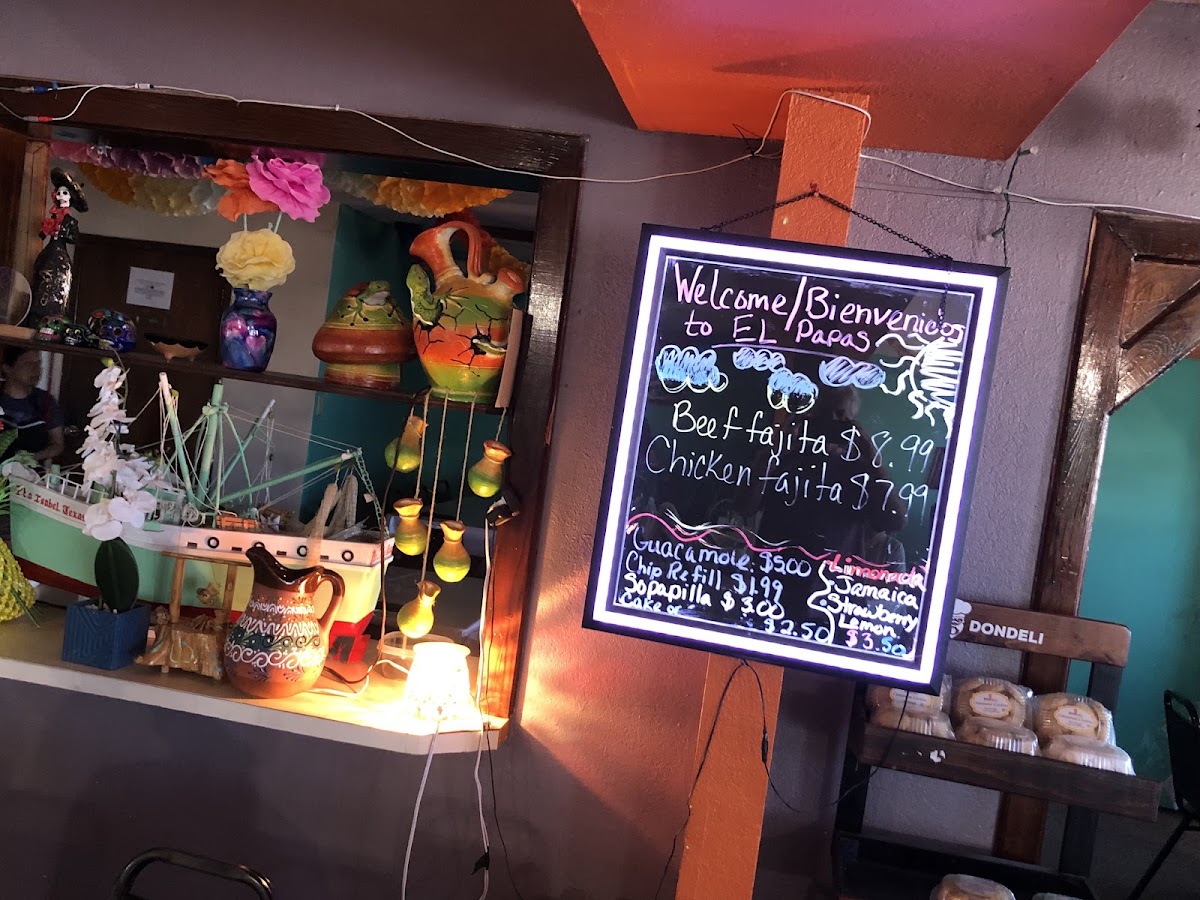 Welcome/Bienvenidos
to EL Papas
Beef fajita $8.99
Chicken fajita $7.99
Guacamole: $5.00
Chip Refill $1.99
Sopapilla $3.00
Cake or
$2.50
Limonada
Jamaica
Strawberry
Lemon
$3.50
DONDELI
Isabel, Texas